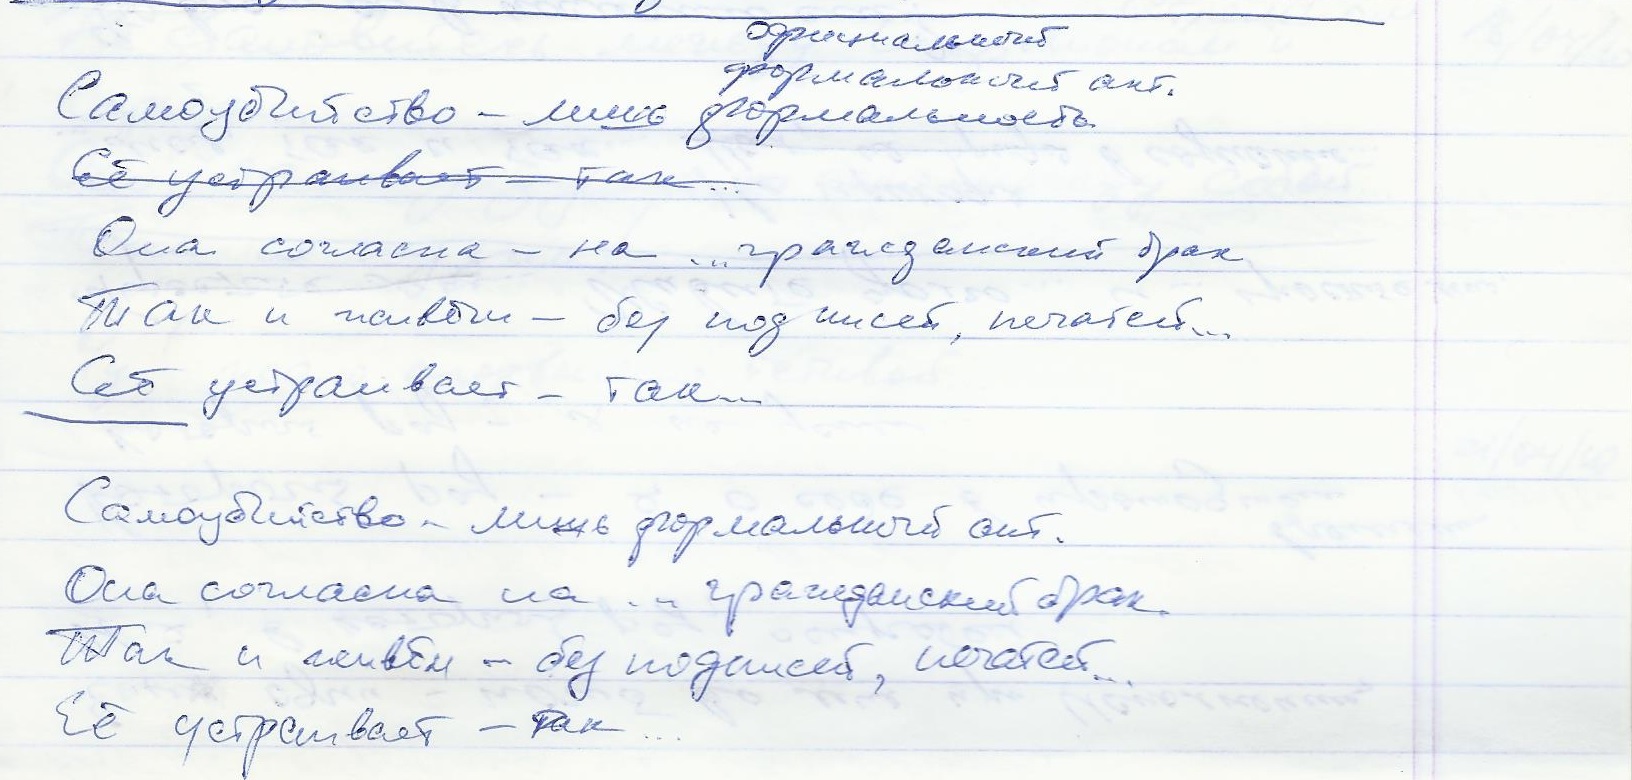 официальный
формальный акт.
Самоубийство – лишь формальность
Её устраивает – так...
Она согласна – на ...гражданский брак
Так и живём – без подписей, печатей...
Её устраивает – так...
Самоубийство – лишь формальный акт.
Она согласна на ... гражданский брак.
Так и живём – без подписей, печатей...
Её устраивает – так...